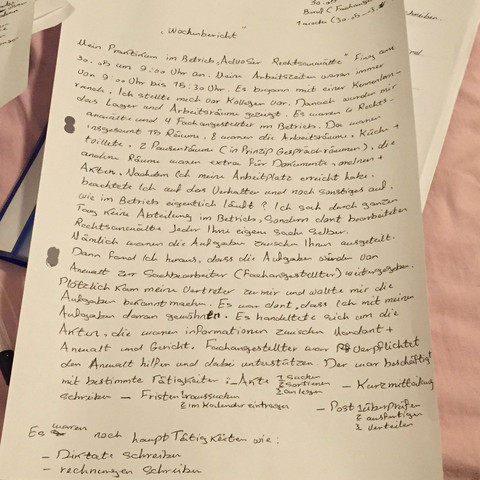 30.05
Beruf (Fachanges
1 woche (30.05 - 3.
schreiben.
rd.
„Wochenbericht"
Mein Praktikum im Betrieb „Advoser Rechtsanwälte" Fing am
30.05 um 9:00 Uhr an. Meine Arbeitszeiten waren immer
von 9:00 Uhr bis 15:30 Uhr. Es begann mit einer Kennenlern-
runde. Ich stellte mich vor Kollegen vor. Danach wurde mir
das Lager und Arbeitsräume gezeigt. Es waren 6 Rechts-
anwälte und 4 Fachangestellter im Betrieb. Da waren
insgesamt 15 Räume. 8 waren die Arbeitsräume, Küche +
toillete, 2 Pausenräume (in Prinzip Gesprächräumen), die
andere Räume waren extra für Dokumente, ordnern +
Akten. Nachdem Ich meine Arbeitplatz erreicht habe,
beachtete Ich auf das Verhalten und noch sonstiges auf,
wie im Betrieb eigentlich läuft? Ich sah durch ganzen
Tag keine Abteilung im Betrieb, Sondern dort bearbeiteten
Rechtsanwälte Jeder Ihre eigene sache Selber.
Nämlich waren die Aufgaben zwischen Ihnen ausgeteilt.
Dann fand Ich heraus, dass die Aufgaben würden von
Anwalt zur Sachbearbeiter (Fachangestellter) weitergegeben.
Plötzlich kam meine Vertreter zu mir und wollte mir die
Aufgaben bekannt machen. Es war dort, dass Ich mit meinen
Aufgaben daran gewöhnte. Es handelte sich um die
Akten, die waren informationen zwischen Mandant +
Anwalt und Gericht. Fachangestellter war verpflichtet
den Anwalt hilfen und dabei unterstützen. Der war beschäftigt
mit bestimmte Tätigkeiten: - Akte 1 suchen 2 sortieren 3 anlegen - Kurzmitteilung
schreiben - Fristen 1 raussuchen 2 im Kalender eintragen - Post 1 überprüfen 2 ausfertigen 3 verteilen
Es waren noch haupt Tätigkeiten wie:
- Diktate schreiben
- rechnungen schreiben